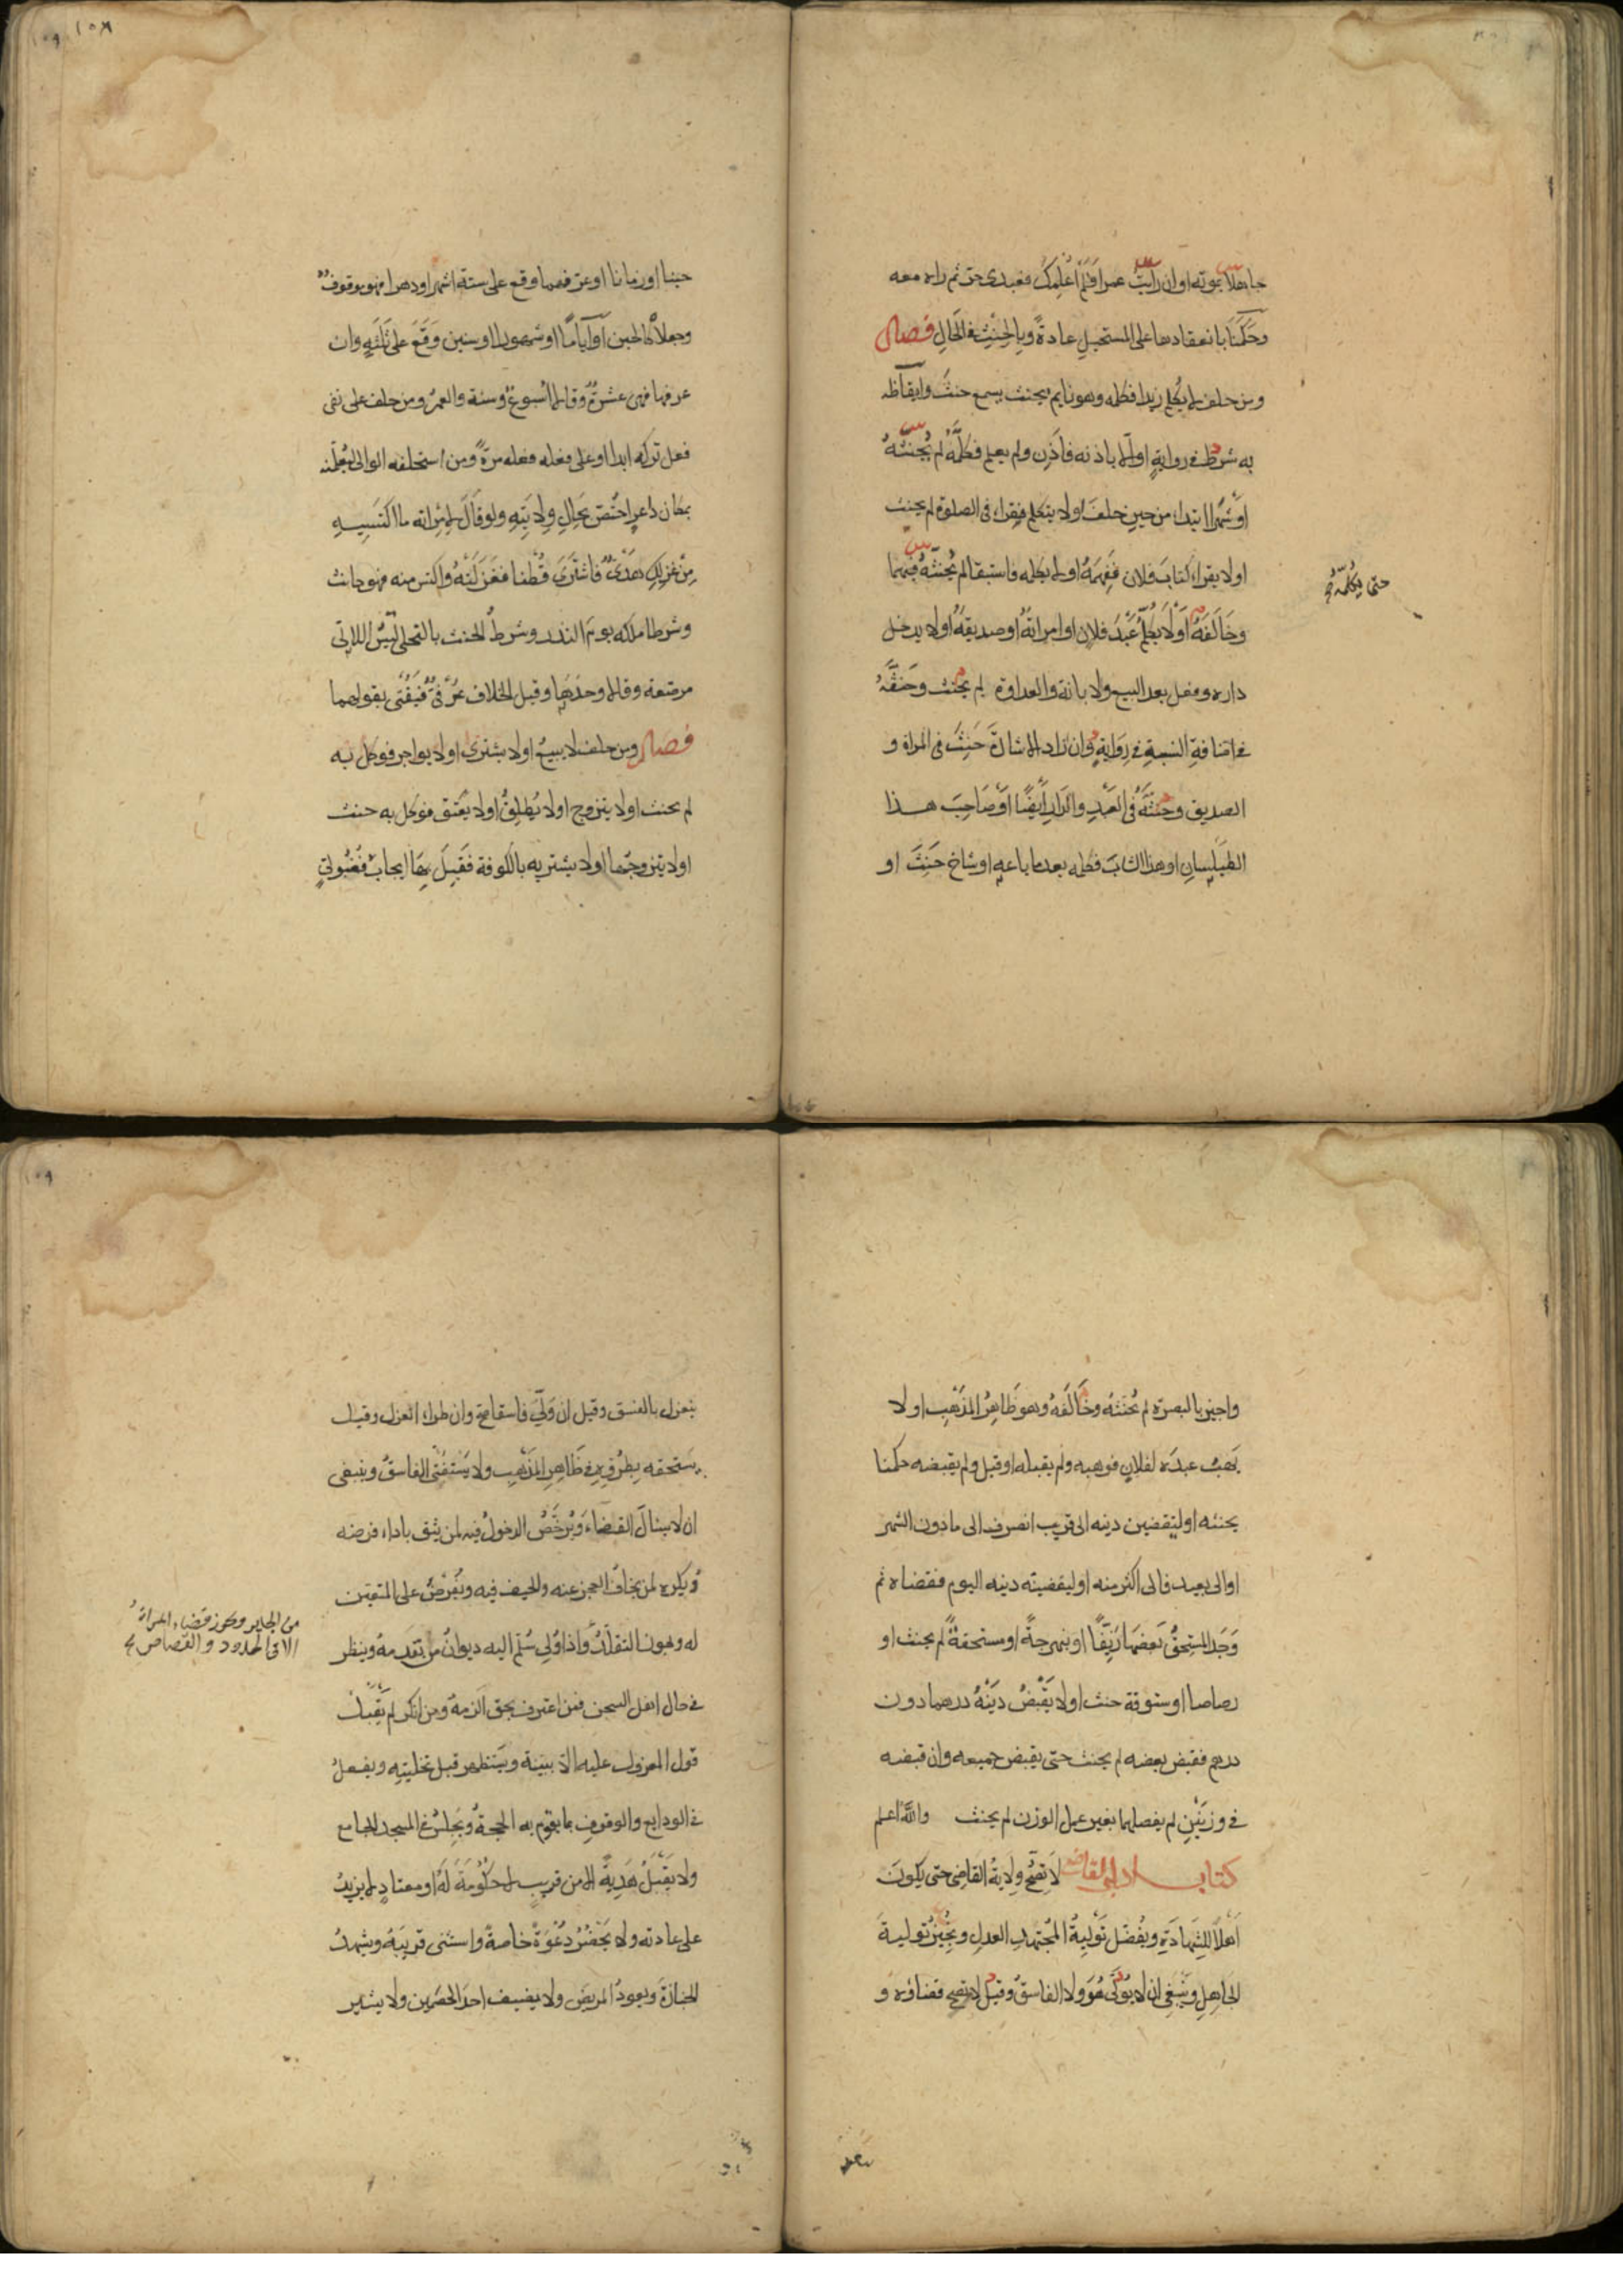 ١٥٨
جاهلا بموته او ان رأيت عمرا فلم اعلمك فعبدى حر ثم راه معه
وحكمنا بانعقادها على المستحيل عادة وبالحنث فى الحال فصل
ومن حلف لا يكلم زيدا فكلمه وهو نايم بحيث يسمع حنث وايقاظه
به شرط فى رواية او الا باذنه فاذن ولم يعلم فكلمه لم يحنثه
او شهرا ابتداء من حين حلف او لا يتكلم فقراء فى الصلوة لم يحنث
او لا يقراء كتاب فلان ففهمه او لا يكلمه واستبقا لم يحنثه فيهما
حتى يكلمه
وخالفه او لا يكلم عبد فلان او امراته او صديقه او لا يدخل
داره وفعل بعد البيع والابانة والعداوة لم يحنث وحنثه
فى اضافة النسبة فى رواية وان زاد الاشارة حنث فى المراة و
الصديق وحنثه فى العبد والدار ايضا او صاحب هذا
الطيلسان او هذا الشاب فكلمه بعد ما باعه او شاخ حنث او
حينا او زمانا او عرفهما وقع على ستة اشهر او دهرا فهو موقوف
وجعلاه كالحين او اياما او شهورا او سنين وقع على ثلثه وان
عرفها فهى عشرة وقالا اسبوع وسنة والعمر ومن حلف على نفى
فعل تركه ابدا او على فعله فعله مرة ومن استحلفه الوالى ليعلمنه
بمكان داعر اختص بحال ولايته ولو قال لامراته ما اكتسيه
من غزلك هدى فاشترى قطنا فغزلته واكتس منه فهو حانث
وشرطا ملكه يوم النذر وشرط الحنث بالتحلى لبس اللالى
مرصعة وقالا وحدها وقيل الخلاف عرفى فيفتى بقولهما
فصل ومن حلف لا يبيع او لا يشترى او لا يواجر فوكل به
لم يحنث او لا يتزوج او لا يطلق او لا يعتق فوكل به حنث
او لا يتزوجها او لا يشتريه بالكوفة فقبل بها ايجاب فضولى
١٥٩
واجيز بالبصرة لم يحنثه وخالفه وهو ظاهر المذهب او لا
يهب عبده لفلان فوهبه ولم يقبله او قبل ولم يقبضه حكمنا
بحنثه او ليقضين دينه الى قريب انصرف الى ما دون الشهر
او الى بعيد فالى اكثر منه او ليقضينه دينه اليوم فقضاه ثم
وجد المستحق بعضها زيفا او بنهرجة او مستحقة لم يحنث او
رصاصا او ستوقة حنث او لا يقبض دينه درهما دون
درهم فقبض بعضه لم يحنث حتى يقبض جميعه وان قبضه
فى وزنين لم يفصلهما بغير عمل الوزن لم يحنث والله اعلم
كتاب ادب القاضى لا تصح ولاية القاضى حتى يكون
اهلا للشهادة ويفضل تولية المجتهد العدل ونجيز تولية
الجاهل وينبغى ان لا يولى هو ولا الفاسق وقيل لا يصح قضاؤه و
ينعزل بالفسق وقيل ان ولى فاسقا صح وان طراء انعزل وقيل
يستحقه بطروه فى ظاهر المذهب ولا يستفتى الفاسق وينبغى
ان لا يسال القضاء ويرخص الدخول فيه لمن يثق باداء فرضه
ويكره لمن يخاف العجز عنه والحيف فيه ويفرض على المتعين
له ويجوز التقلد واذا ولى سلم اليه ديوان من تقدمه وينظر
من الجاير ويجوز قضاء المراة
الا فى الحدود والقصاص
فى حال اهل السجن فمن اعترف بحق الزمه ومن انكر لم يقبل
قول المعزول عليه الا ببينة ويستظهر قبل تخليته ويفعل
فى الودايع والوقوف بما يقوم به الحجة ويجلس فى المسجد الجامع
ولا يقبل هدية الا من قريب لا حكومة له او معتاد لا يزيد
على عادته ولا يحضر دعوة خاصة واستثنى قريبه ويشهد
الجنازة ويعود المريض ولا يضيف احد الخصمين ولا يشير